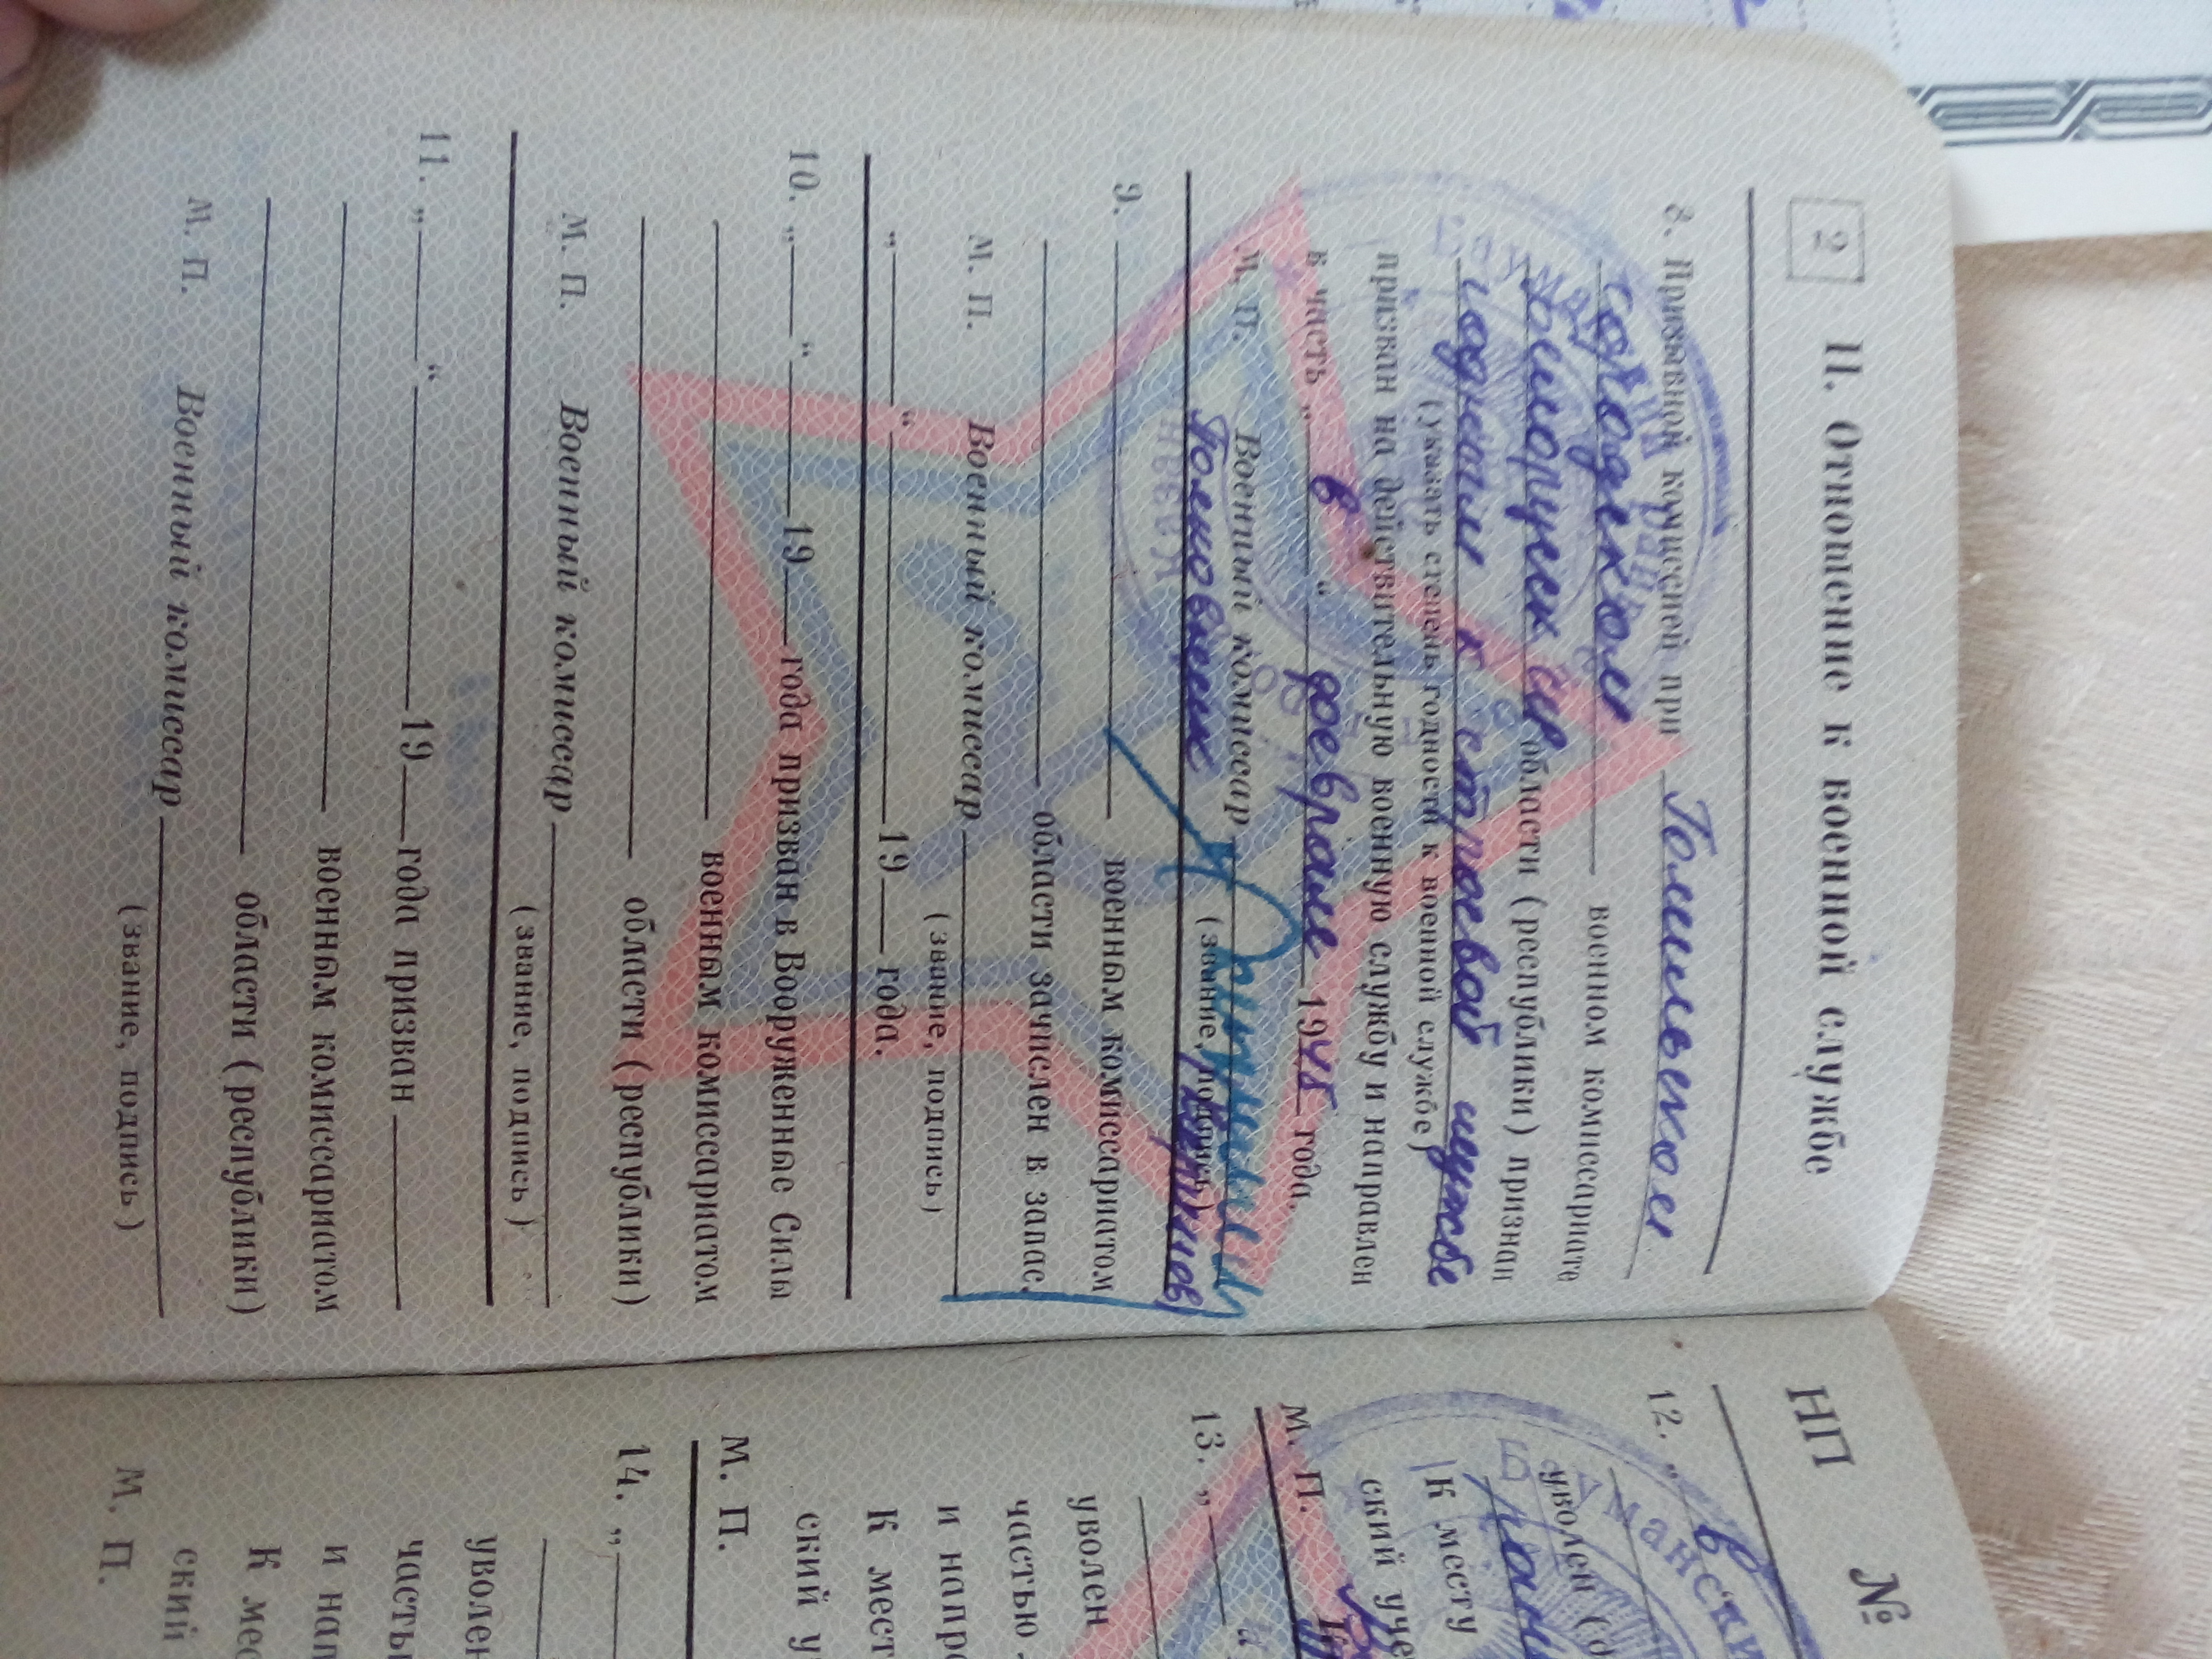 2
II. Отношение к военной службе
8. Призывной комиссией при Гомельском
городском военном комиссариате
Белорусск ССР области (республики) признан
годным к строевой службе
(указать степень годности к военной службе)
призван на действительную военную службу и направлен
в часть „ в “ феврале 1945 года.
М. П. Военный комиссар
(звание, подпись)
Полковник
9. военным комиссариатом
области зачислен в запас.
М. П. Военный комиссар
(звание, подпись)
„ “ 19 года.
10. „ “ 19 года призван в Вооруженные Силы
военным комиссариатом
области (республики)
М. П. Военный комиссар
(звание, подпись)
11. „ “ 19 года призван
военным комиссариатом
области (республики)
М. П. Военный комиссар
(звание, подпись)
НП №
12. „ в
уволен
К месту
ский уче
М. П.
13. „ “
уволен
частью
и напр
К мест
ский у
М. П.
14. „
уволен
часть
и нап
К мес
ский
М. П.
Бауманский